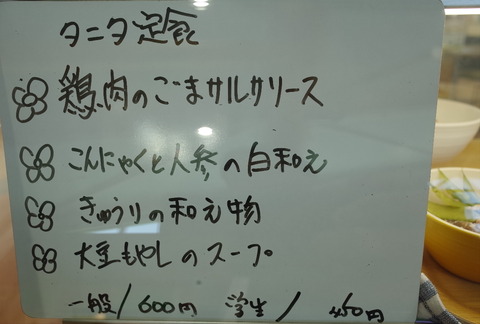 タニタ定食
鶏肉のごまサルサソース
こんにゃくと人参の白和え
きゅうりの和え物
大豆もやしのスープ
一般/600円 学生/450円